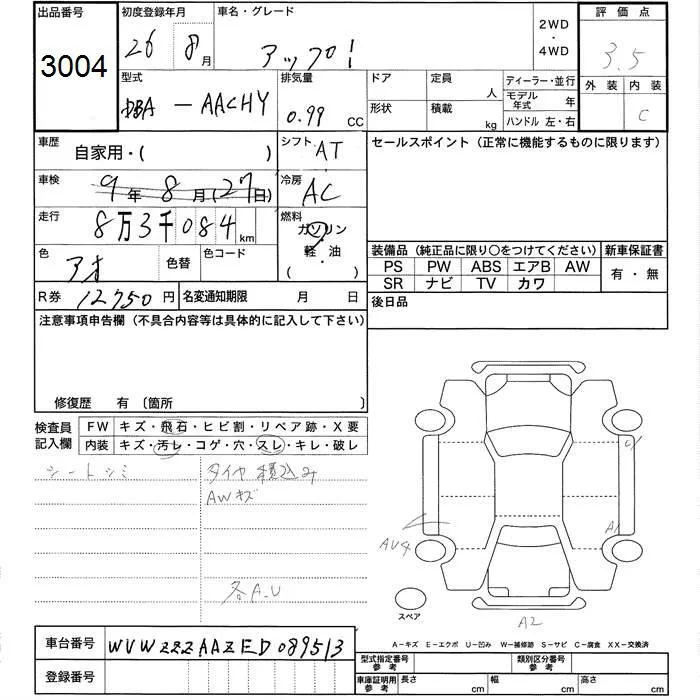 出品番号 初度登録年月 車名・グレード 2WD ・ 4WD 評価点
3004 26 8月 アップ! 3.5
外装 内装
C
型式 排気量 ドア 定員 人 ディーラー・並行
DBA-AACHY 0.99 CC 形状 積載 kg モデル年式 年
ハンドル 左・右
車歴 自家用・( ) シフト AT セールスポイント (正常に機能するものに限ります)
車検 9年8月(27日) 冷房 AC
走行 8万3千084km 燃料 ガソリン・軽・油 ( )
色 アオ 色替 色コード
装備品 (純正品に限り○をつけてください) 新車保証書
PS PW ABS エアB AW 有・無
SR ナビ TV カワ
R券 12750円 名変通知期限 月 日 後日品
注意事項申告欄 (不具合内容等は具体的に記入して下さい)
修復歴 有 〔箇所
検査員記入欄 FW キズ・飛石・ヒビ割・リペア跡・X要
内装 キズ・汚レ・コゲ・穴・スレ・キレ・破レ
シートシミ タイヤ積込み
AWキズ
各A.U
AU4
A1
スペア
A2
A-キズ E-エクボ U-凹み W-補修跡 S-サビ C-腐食 XX-交換済
車台番号 WVWZZZAAZED089513
登録番号
型式指定番号 参考 類別区分番号 参考
車庫証明用 参考 長さ cm 幅 cm 高さ cm